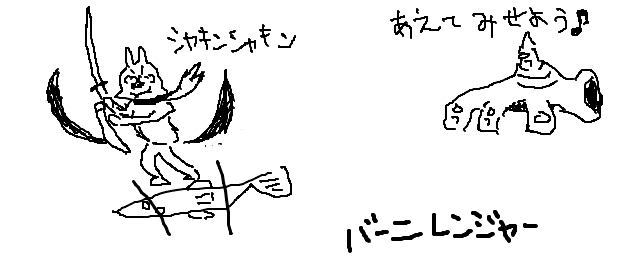 シャキンシャキン
あえてみせよう♪
バーニレンジャー